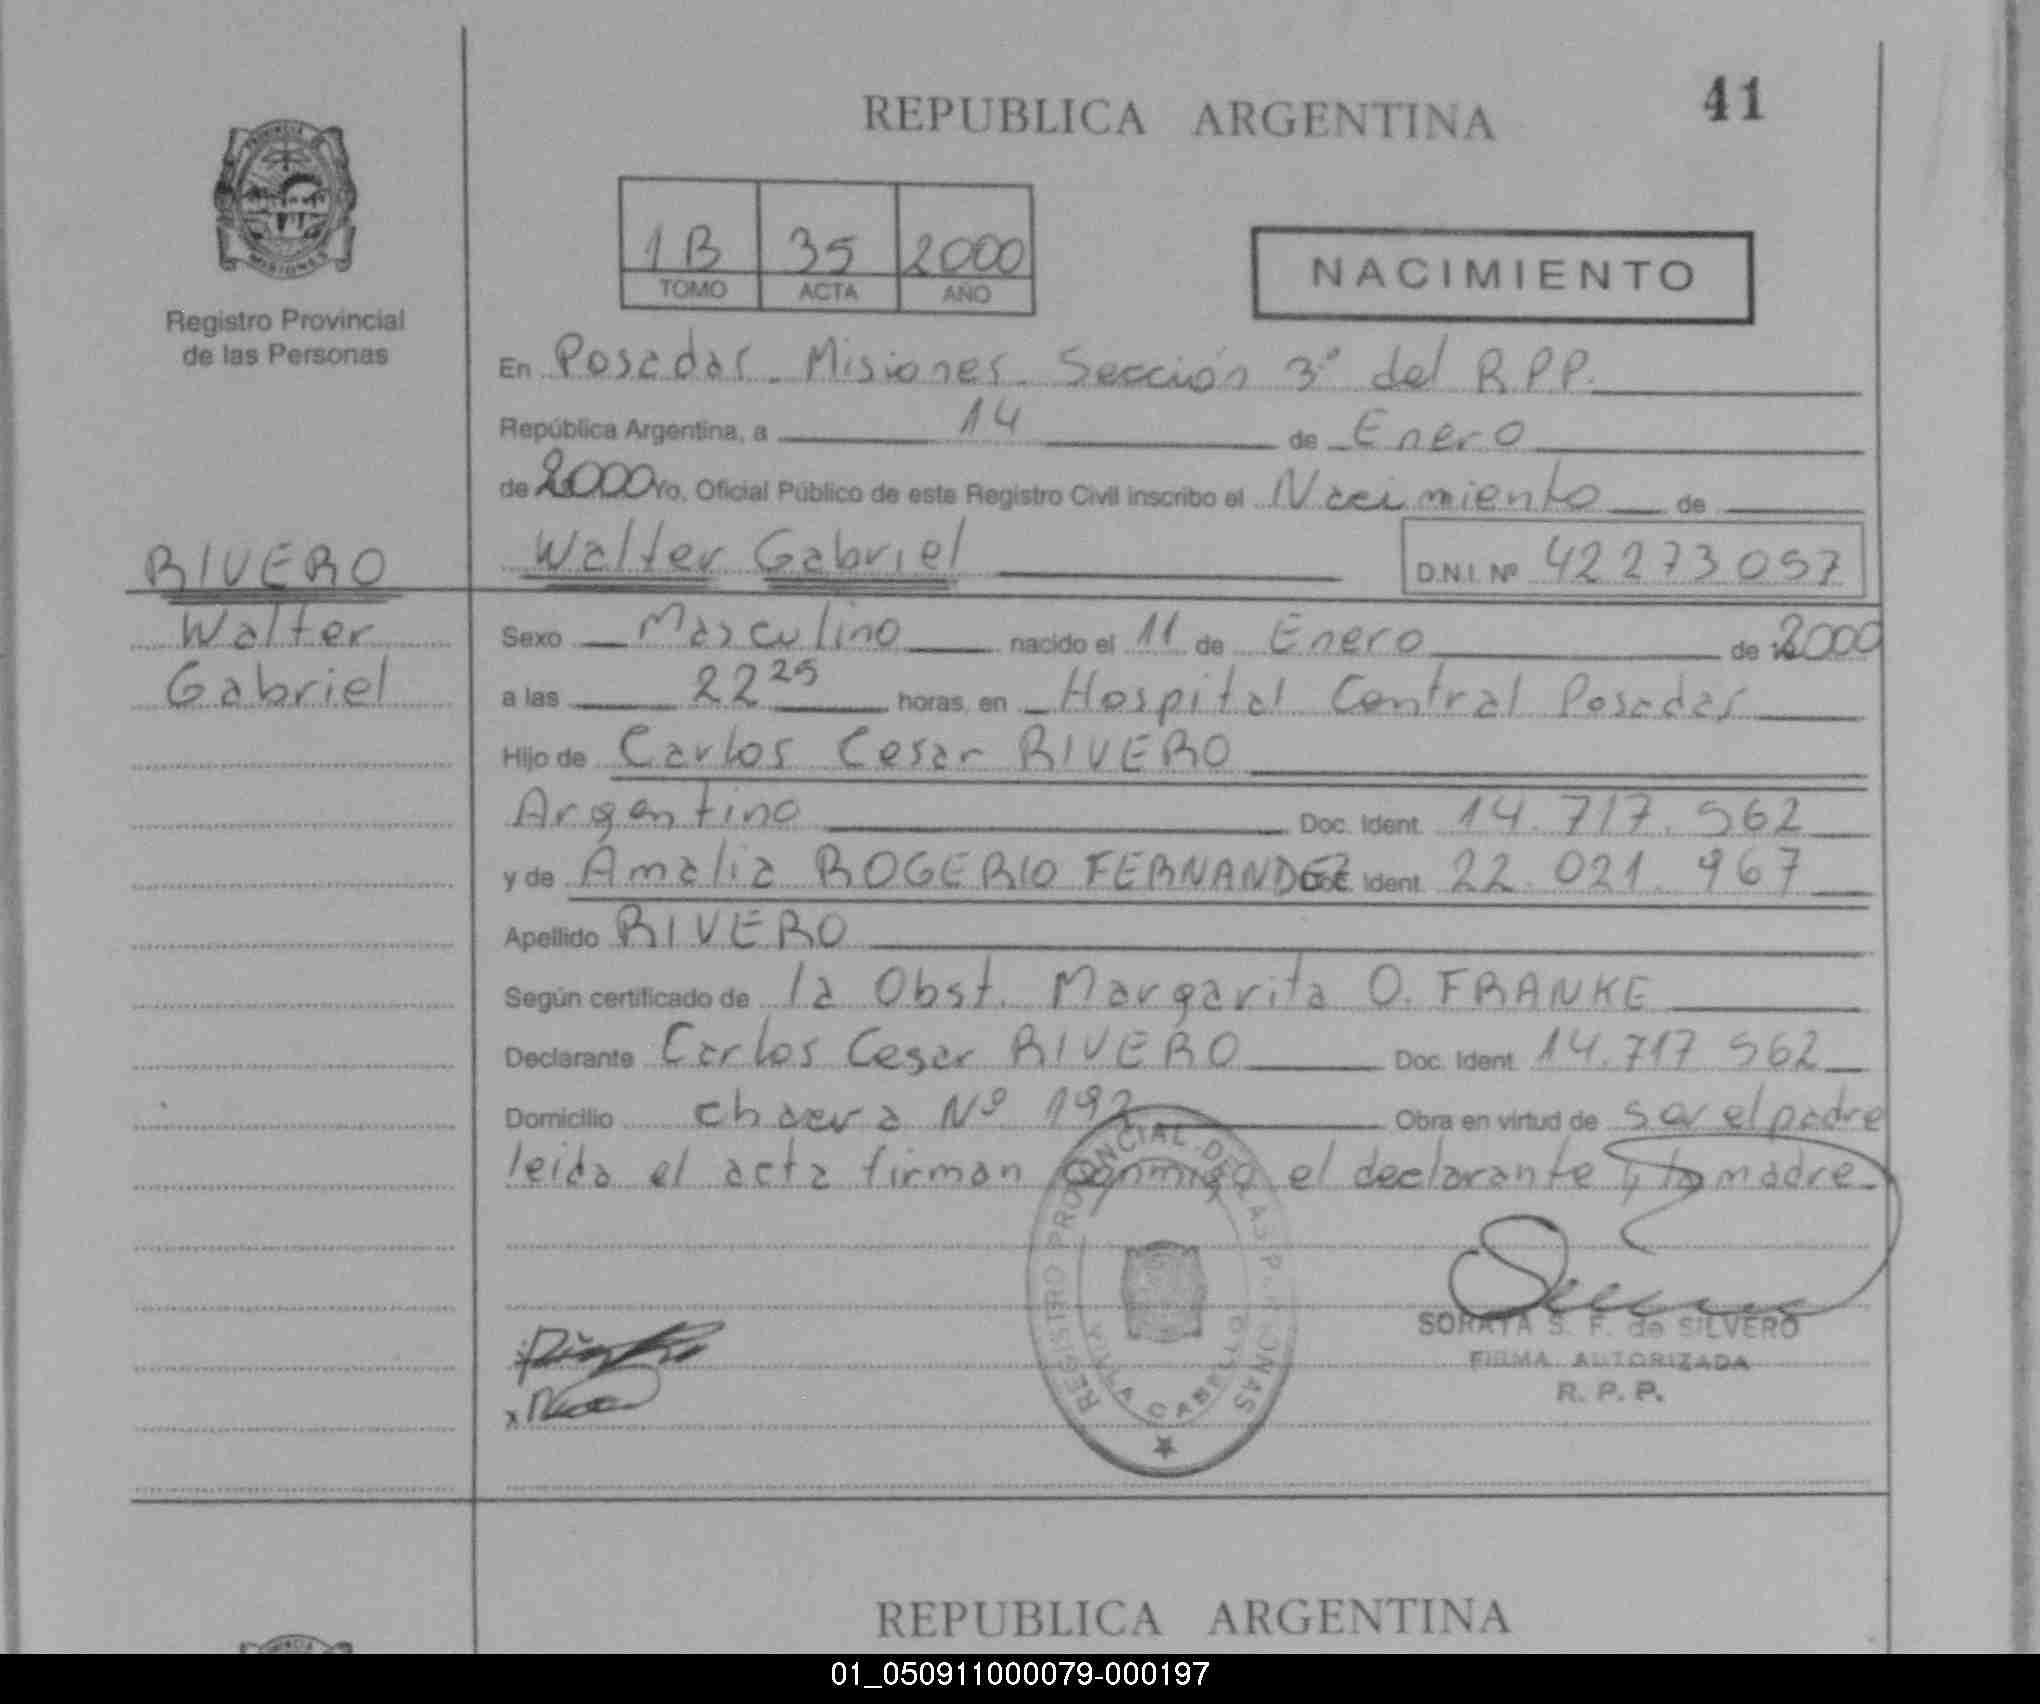 REPUBLICA ARGENTINA
41
PROVINCIA
MISIONES
Registro Provincial
de las Personas
1B 35 2000
TOMO ACTA AÑO
NACIMIENTO
En Posadas - Misiones - Sección 3º del R.P.P.
República Argentina, a 14 de Enero
de 2000 Yo, Oficial Público de este Registro Civil inscribo el Nacimiento de
Walter Gabriel D.N.I. Nº 42273057
RIVERO
Walter
Gabriel
Sexo Masculino nacido el 11 de Enero de 2000
a las 22 25 horas, en Hospital Central Posadas
Hijo de Carlos Cesar RIVERO
Argentino Doc. Ident. 14.717.562
y de Amalia ROGERIO FERNANDEZ Doc. Ident. 22.021.967
Apellido RIVERO
Según certificado de la Obst. Margarita O. FRANKE
Declarante Carlos Cesar RIVERO Doc. Ident. 14.717 562
Domicilio chacra Nº 192 Obra en virtud de ser el padre
leida el acta firman conmigo el declarante y la madre.
REGISTRO PROVINCIAL DE LAS PERSONAS
VILLA CABELLO
SORAYA S. F. de SILVERO
FIRMA AUTORIZADA
R. P. P.
REPUBLICA ARGENTINA
01_050911000079-000197